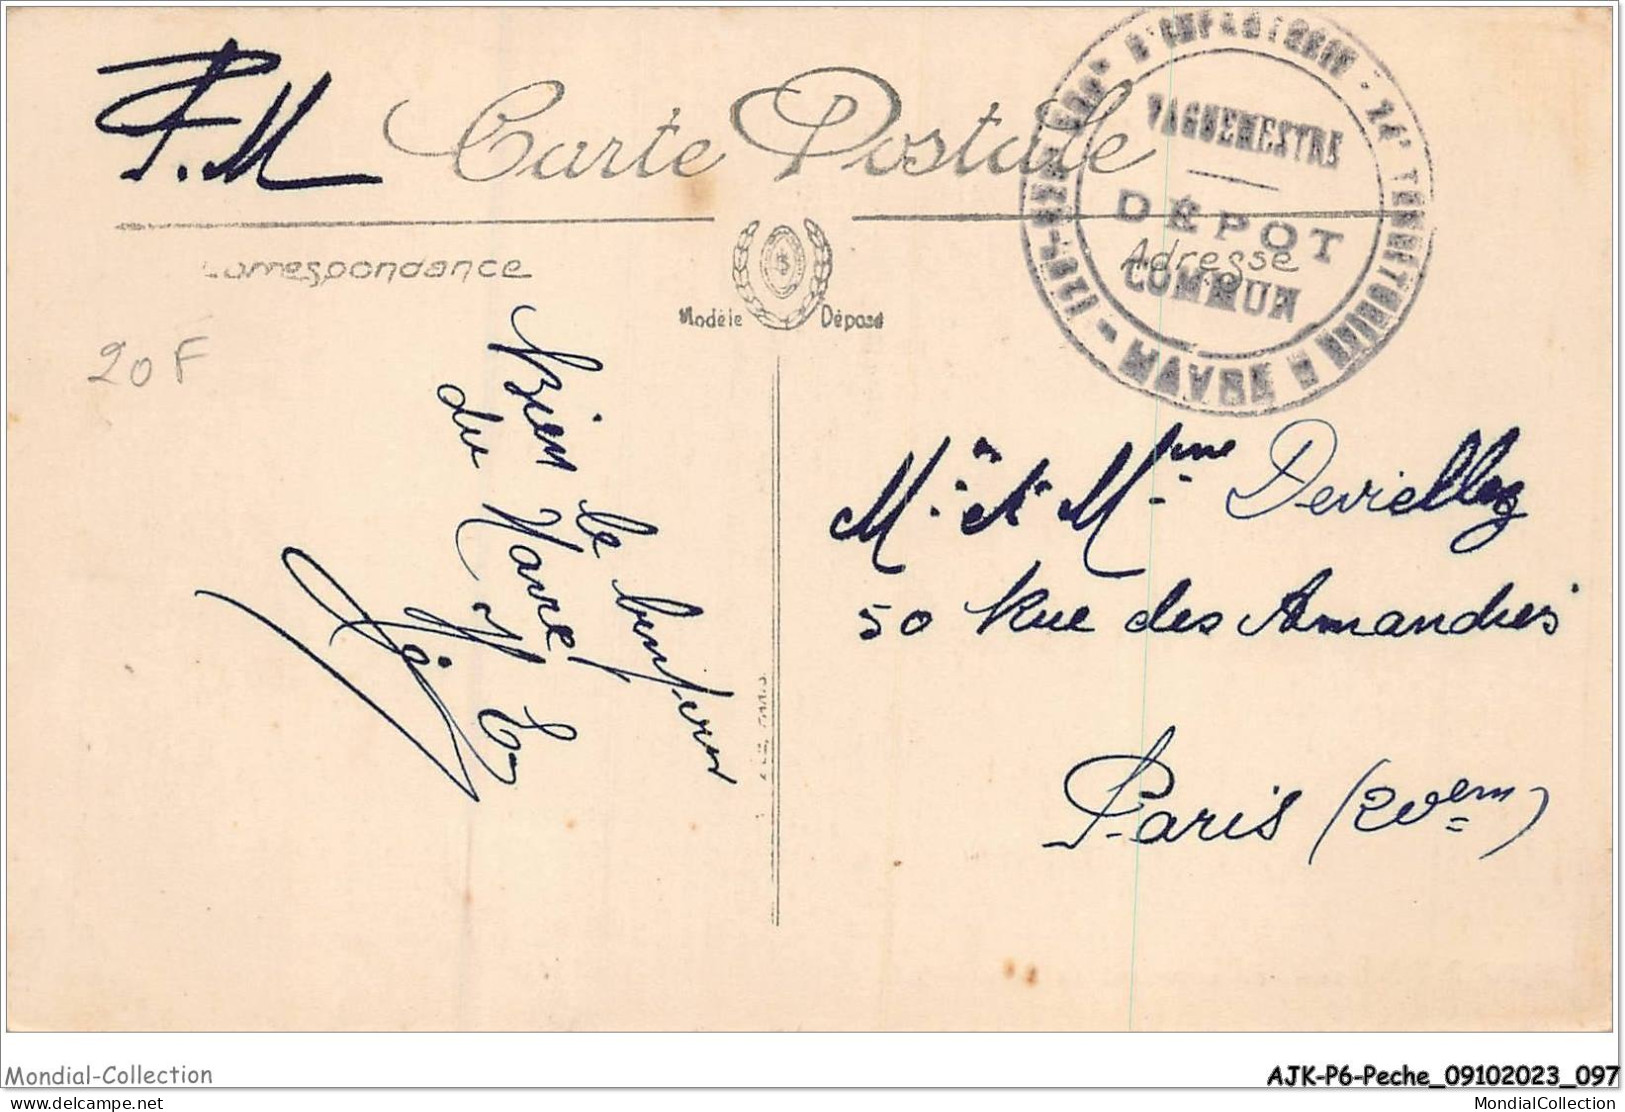 F.M
Carte Postale
D'INFANTERIE - 24e TERRITORIAL
129e
HAVRE
VAGUEMESTRE
DÉPOT
COMMUN
Correspondance
Adresse
Modèle Déposé
20F
Bien le bonjour
du Havre
Mr et Mme
50 Rue des Amandiers
Paris (20em)
PARIS.
Mondial-Collection
AJK-P6-Peche_09102023_097
delcampe.net
MondialCollection